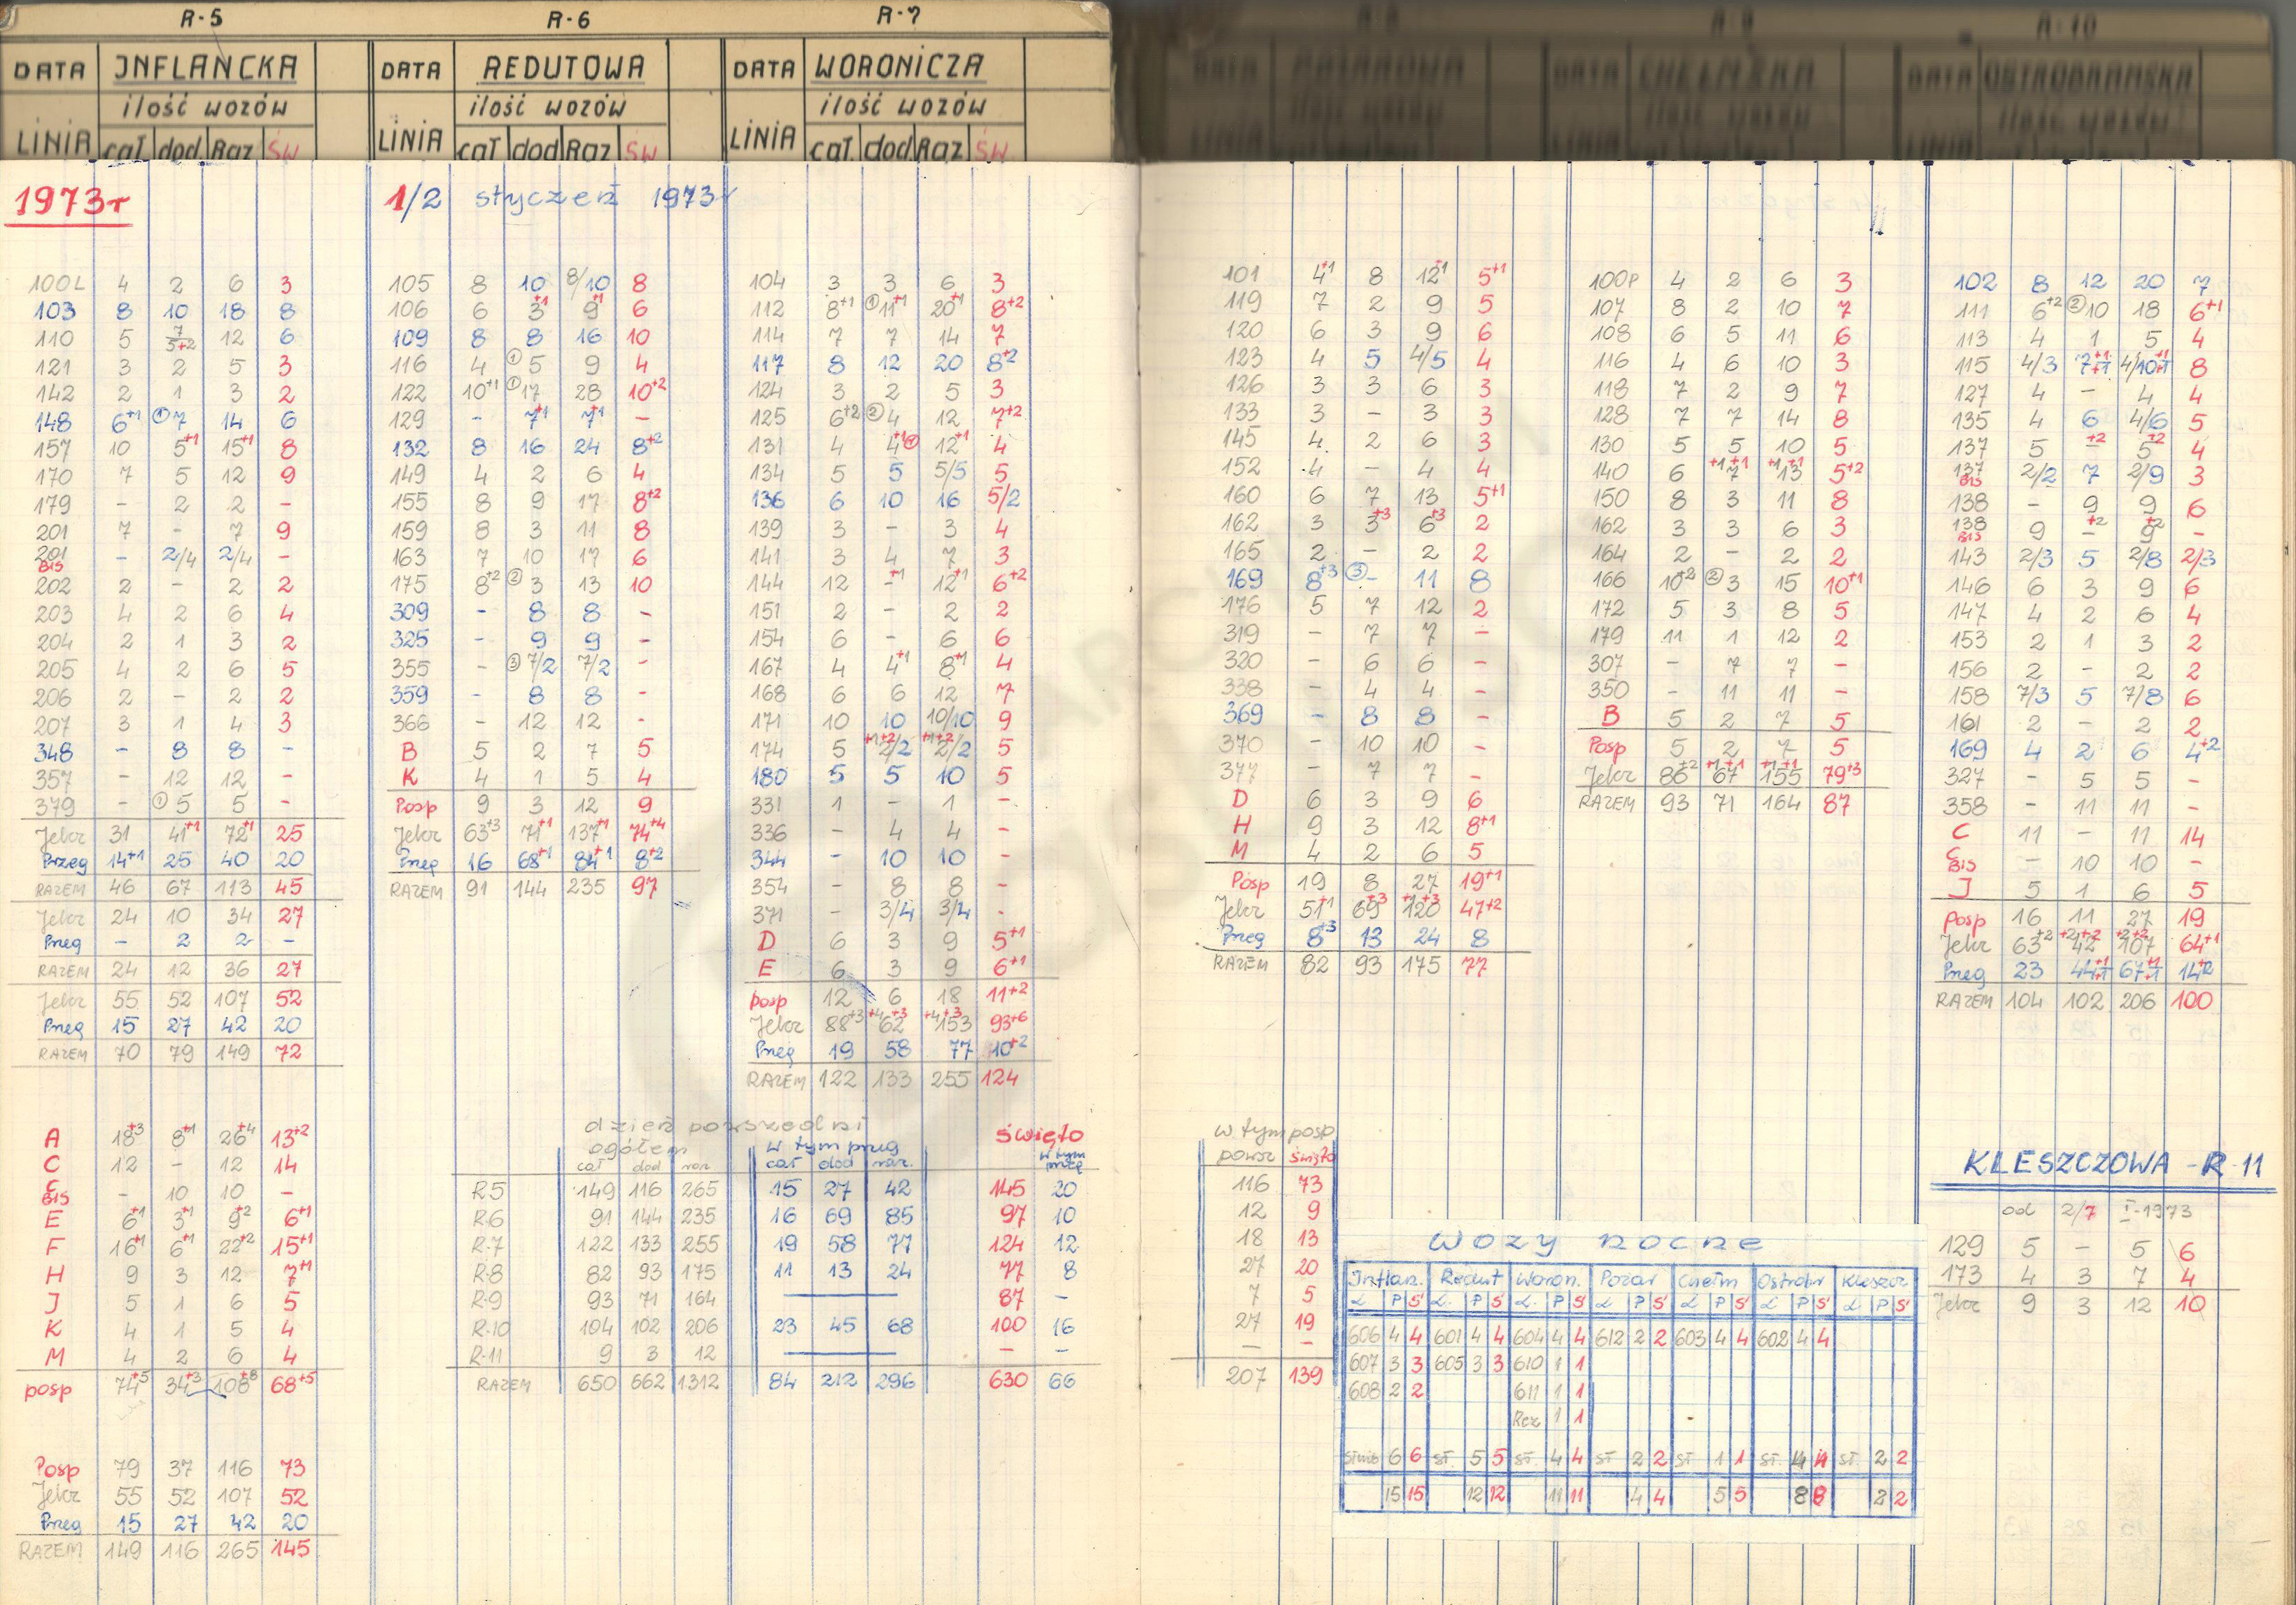 R-5
INFLANCKA
DATA
ilość wozów
LINIA cał dod Raz ŚW
1973r
100L 4 2 6 3
103 8 10 18 8
110 5 7/5+2 12 6
121 3 2 5 3
142 2 1 3 2
148 6+1 ①7 14 6
157 10 5+1 15+1 8
170 7 5 12 9
179 - 2 2 -
201 7 - 7 9
201 BIS - 2/4 2/4 -
202 2 - 2 2
203 4 2 6 4
204 2 1 3 2
205 4 2 6 5
206 2 - 2 2
207 3 1 4 3
348 - 8 8 -
357 - 12 12 -
379 - ①5 5 -
Jekr 31 41+1 72+1 25
Przeg 14+1 25 40 20
RAZEM 46 67 113 45
Jekr 24 10 34 27
Przeg - 2 2 -
RAZEM 24 12 36 27
Jekr 55 52 107 52
Przeg 15 27 42 20
RAZEM 70 79 149 72
A 18+3 8+1 26+4 13+2
C 12 - 12 14
C BIS - 10 10 -
E 6+1 3+1 9+2 6+1
F 16+1 6+1 22+2 15+1
H 9 3 12 7+1
J 5 1 6 5
K 4 1 5 4
M 4 2 6 4
posp 74+5 34+3 108+8 68+5
Posp 79 37 116 73
Jekr 55 52 107 52
Przeg 15 27 42 20
RAZEM 149 116 265 145
R-6
DATA REDUTOWA
ilość wozów
LINIA cał dod Raz ŚW
1/2 styczeń 1973r
105 8 10 8/10 8
106 6 3+1 9+1 6
109 8 8 16 10
116 4 ①5 9 4
122 10+1 ①17 28 10+2
129 - 7+1 7+1 -
132 8 16 24 8+2
149 4 2 6 4
155 8 9 17 8+2
159 8 3 11 8
163 7 10 17 6
175 8+2 ②3 13 10
309 - 8 8 -
325 - 9 9 -
355 - ③7/2 7/2 -
359 - 8 8 -
366 - 12 12 -
B 5 2 7 5
K 4 1 5 4
Posp 9 3 12 9
Jekr 63+3 71+1 137+1 74+4
Przeg 16 68+1 84+1 8+2
RAZEM 91 144 235 97
R-7
DATA WORONICZA
ilość wozów
LINIA cał. dod Raz ŚW.
104 3 3 6 3
112 8+1 ①11+1 20+1 8+2
114 7 7 14 7
117 8 12 20 8+2
124 3 2 5 3
125 6+2 ②4 12 7+2
131 4 4+1① 12+1 4
134 5 5 5/5 5
136 6 10 16 5/2
139 3 - 3 4
141 3 4 7 3
144 12 -+1 12+1 6+2
151 2 - 2 2
154 6 - 6 6
167 4 4+1 8+1 4
168 6 6 12 7
171 10 10 10/10 9
174 5 +1+2 2/2 +1+2 2/2 5
180 5 5 10 5
331 1 - 1 -
336 - 4 4 -
344 - 10 10 -
354 - 8 8 -
371 - 3/4 3/4 -
D 6 3 9 5+1
E 6 3 9 6+1
posp 12 6 18 11+2
Jekr 88+3 +4+3 62 +4+3 153 93+6
Przeg 19 58 77 10+2
RAZEM 122 133 255 124
dzień powszedni
ogółem w tym przeg święto
cał dod raz cał dod raz. w tym przeg
R5 149 116 265 15 27 42 145 20
R.6 91 144 235 16 69 85 97 10
R.7 122 133 255 19 58 77 124 12
R.8 82 93 175 11 13 24 77 8
R-9 93 71 164 — 87 -
R.10 104 102 206 23 45 68 100 16
R-11 9 3 12 — - -
RAZEM 650 662 1312 84 212 296 630 66
101 4+1 8 12+1 5+1
119 7 2 9 5
120 6 3 9 6
123 4 5 4/5 4
126 3 3 6 3
133 3 - 3 3
145 4 2 6 3
152 4 - 4 4
160 6 7 13 5+1
162 3 3+3 6+3 2
165 2 - 2 2
169 8+3 ③- 11 8
176 5 7 12 2
319 - 7 7 -
320 - 6 6 -
338 - 4 4 -
369 - 8 8 -
370 - 10 10 -
377 - 7 7 -
D 6 3 9 6
H 9 3 12 8+1
M 4 2 6 5
Posp 19 8 27 19+1
Jekr 51+1 69+3 120+1+3 47+2
Przeg 8+3 13 24 8
RAZEM 82 93 175 77
w tym posp
powsz święto
116 73
12 9
18 13
27 20
7 5
27 19
- -
207 139
100P 4 2 6 3
107 8 2 10 7
108 6 5 11 6
116 4 6 10 3
118 7 2 9 7
128 7 7 14 8
130 5 5 10 5
140 6 +1+1 7 +1+1 13 5+2
150 8 3 11 8
162 3 3 6 3
164 2 - 2 2
166 10+2 ②3 15 10+1
172 5 3 8 5
179 11 1 12 2
307 - 7 7 -
350 - 11 11 -
B 5 2 7 5
Posp 5 2 7 5
Jekr 86+2 +1+1 67 +1+1 155 79+3
RAZEM 93 71 164 87
WOZY NOCNE
Inflan. Redut Woron. Pożar Chełm Ostrobr Kleszcz
L P S L. P S L. P S L P S L P S L P S L P S
606 4 4 601 4 4 604 4 4 612 2 2 603 4 4 602 4 4
607 3 3 605 3 3 610 1 1
608 2 2 611 1 1
Rez 1 1
6 6 st. 5 5 st. 4 4 st 2 2 st 1 1 st. 4 4 st. 2 2
15 15 12 12 11 11 4 4 5 5 8 8 2 2
102 8 12 20 7
111 6+2 ②10 18 6+1
113 4 1 5 4
115 4/3 7+1+1 4/10+1+1 8
127 4 - 4 4
135 4 6 4/6 5
137 5 -+2 5+2 4
137 BIS 2/2 7 2/9 3
138 - 9 9 6
138 BIS 9 -+2 9+2 -
143 2/3 5 2/8 2/3
146 6 3 9 6
147 4 2 6 4
153 2 1 3 2
156 2 - 2 2
158 7/3 5 7/8 6
161 2 - 2 2
169 4 2 6 4+2
327 - 5 5 -
358 - 11 11 -
C 11 - 11 14
C BIS - 10 10 -
J 5 1 6 5
posp 16 11 27 19
Jekr 63+2 +2+2 42 +2+2 107 64+1
Przeg 23 44+1+1 67+1+1 14+2
RAZEM 104 102 206 100
KLESZCZOWA - R-11
od 2/7 I-1973
129 5 - 5 6
173 4 3 7 4
Jekr 9 3 12 10